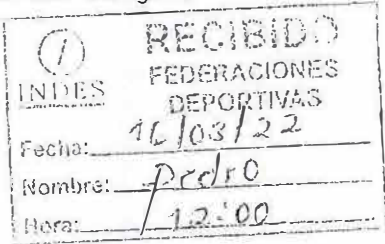 RECIBIDO
FEDERACIONES
INDES
DEPORTIVAS
Fecha: 16/03/22
Nombre: Pedro
Hora: 12:00